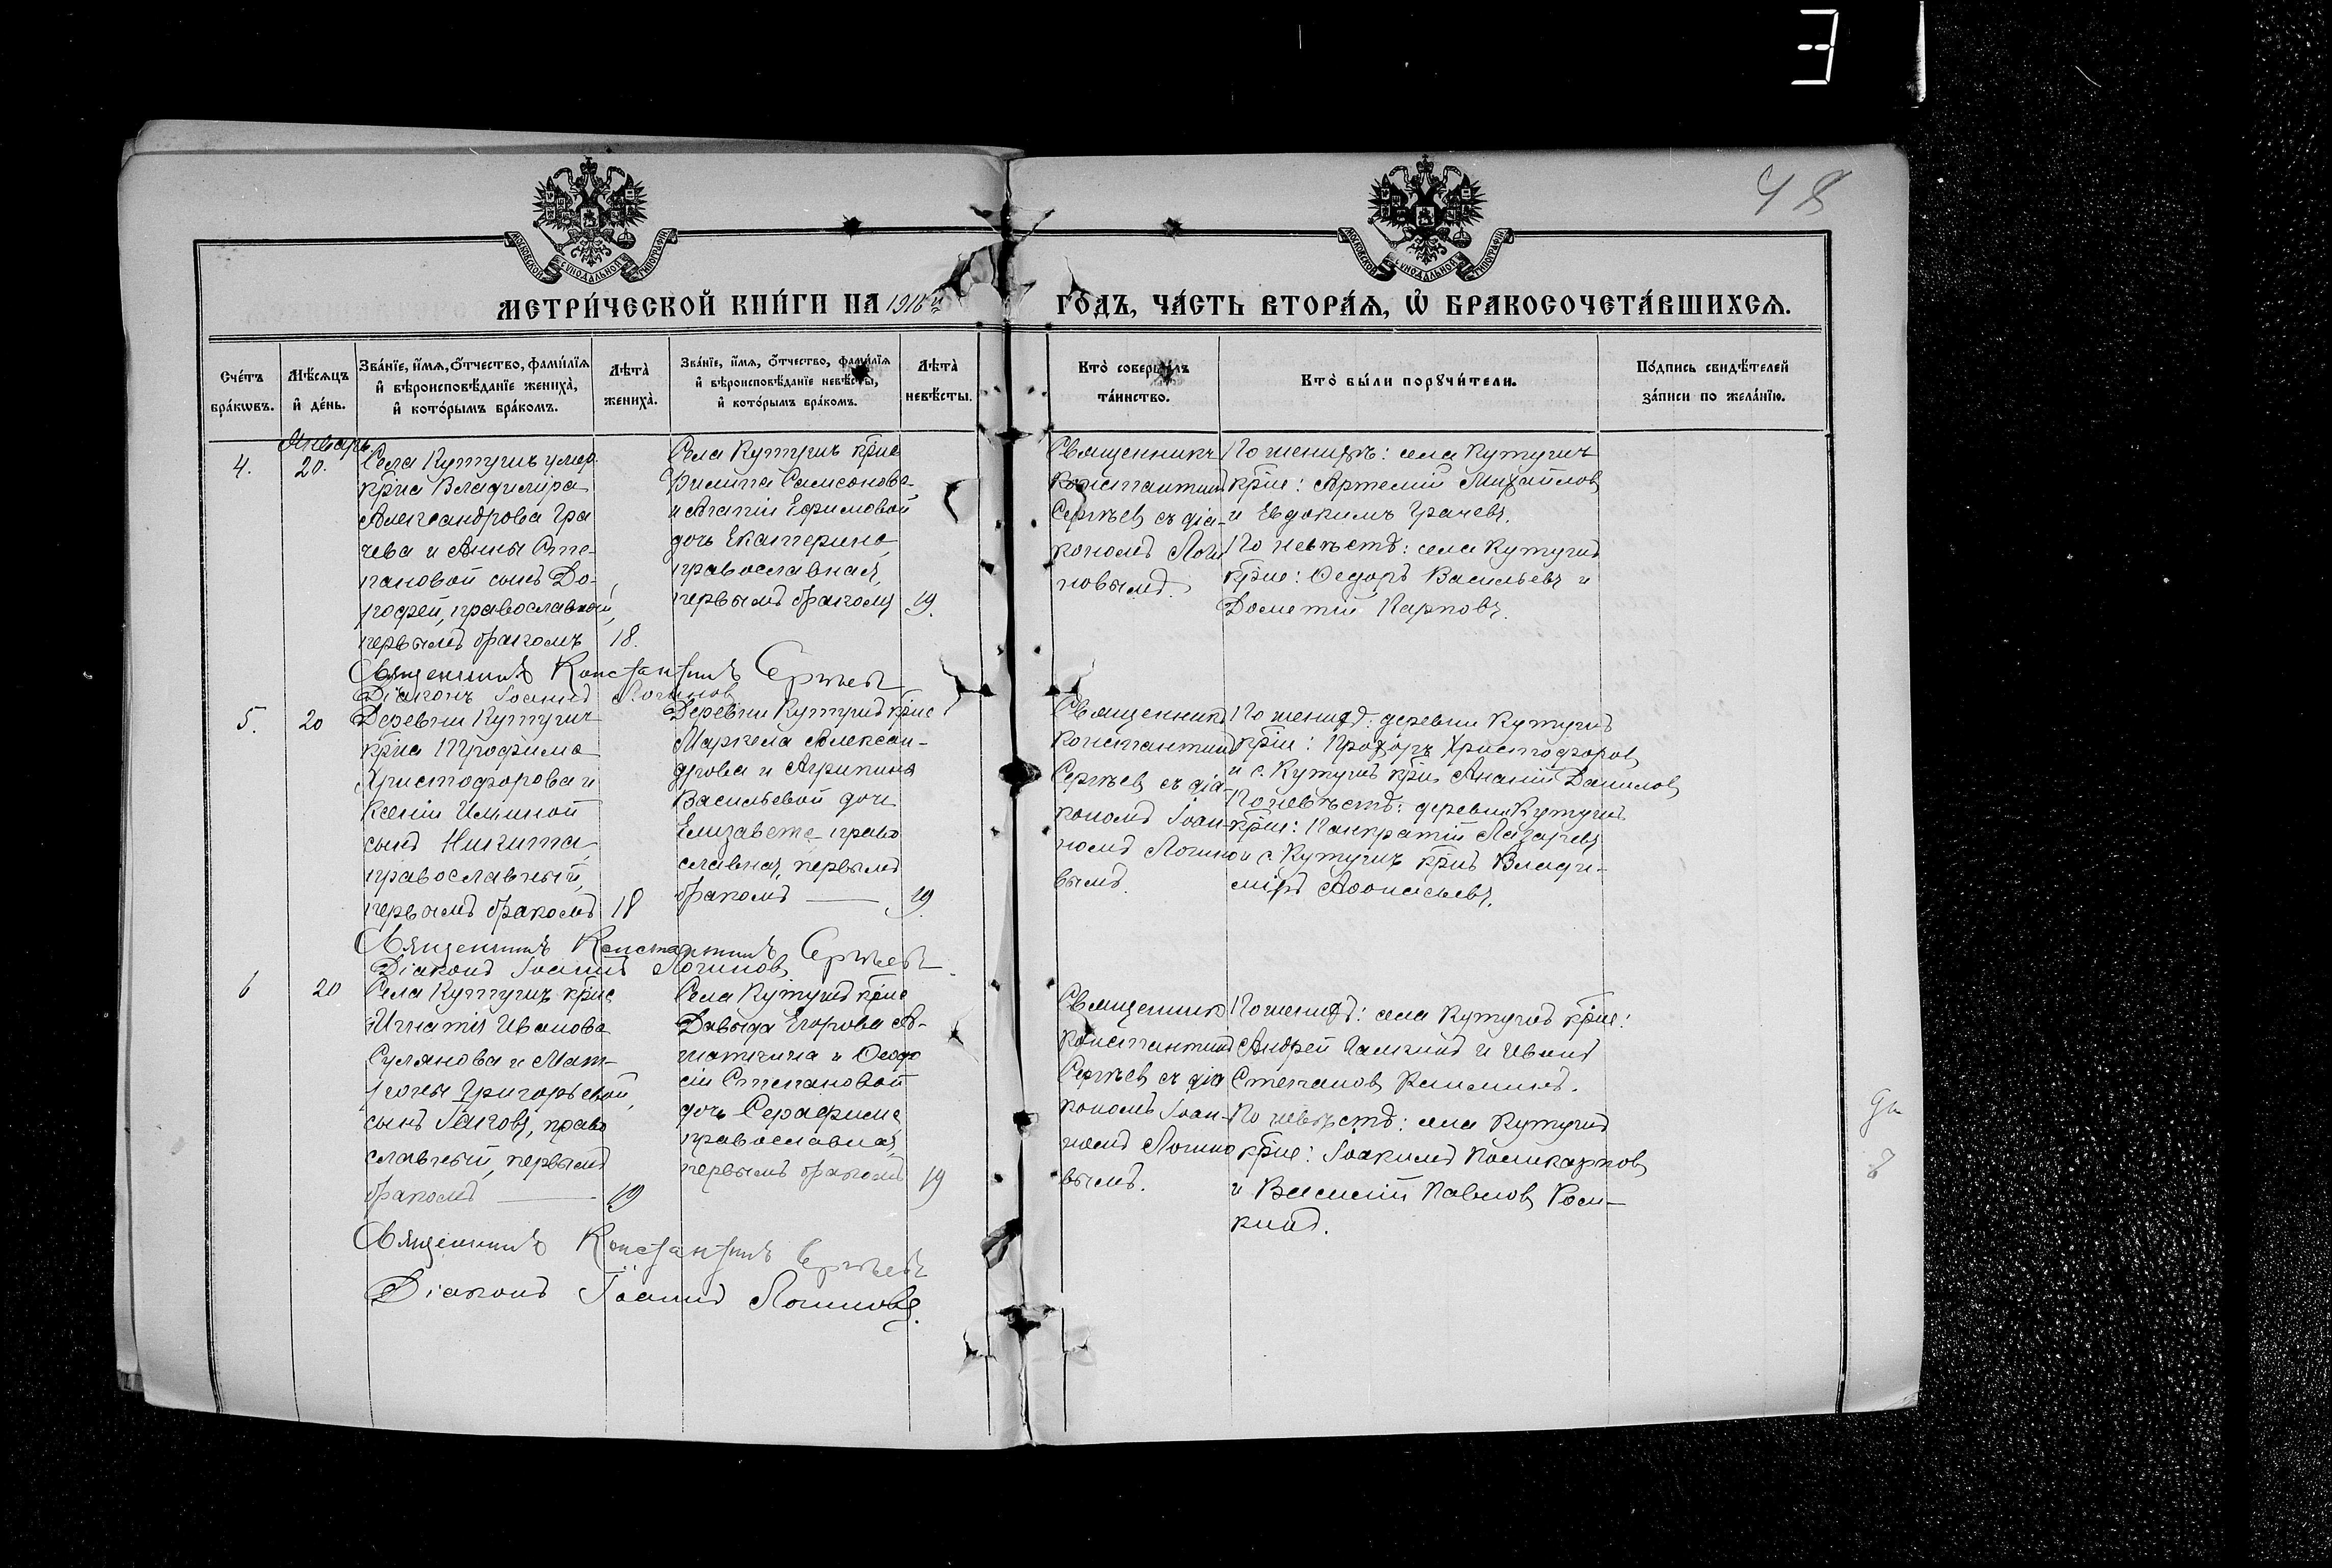 48
МОСКОВСКОЙ СѴНОДАЛЬНОЙ ТИПОГРАФІИ
МОСКОВСКОЙ СѴНОДАЛЬНОЙ ТИПОГРАФІИ
МЕТРИ́ЧЕСКОЙ КНИ́ГИ НА 1916й ГО́ДЪ, ЧА́СТЬ ВТОРА́Я, Ѽ БРАКОСОЧЕТА́ВШИХСЯ.
Сче́тъ
бра́кѡвъ.
Мѣ́сяцъ
и҆ де́нь.
Зва́нїе, и҆́мя, о҆́тчество, фами́лїя
и҆ вѣроисповѣ́данїе жениха̀,
и҆ кото́рымъ бра́комъ.
Лѣта̀
жениха̀.
Зва́нїе, и҆́мя, о҆́тчество, фами́лїя
и҆ вѣроисповѣ́данїе невѣ́сты,
и҆ кото́рымъ бра́комъ.
Лѣта̀
невѣ́сты.
Кто̀ соверши́лъ
та́инство.
Кто̀ бы́ли порꙋчи́тели.
По́дпись свидѣ́телей
за́писи по жела́нїю.
Январь
4.
20.
Села Кутушъ умер.
кр҃на Владиміра
Александрова Гра
чева и Анны Сте-
пановой сынъ До-
рофей, православный,
первымъ бракомъ
18.
Села Кутушъ кр҃на
Филиппа Самсонова
и Агапіи Ефимовой
дочь Екатерина
православная,
первымъ бракомъ
19.
Священникъ
Константинъ
Сергѣевъ съ діа-
кономъ Логи
новымъ.
По женихѣ: села Кутушъ
кр҃не: Артемій Михайловъ
и Евдокимъ Грачевъ.
По невѣстѣ: села Кутушъ
кр҃не: Ѳедоръ Васильевъ и
Дометій Карповъ.
Священникъ Константинъ Сергѣевъ
Діаконъ Іоаннъ Логиновъ
5.
20
Деревни Кутушъ
кр҃на Трофима
Христофорова и
Ксеніи Ильиной
сынъ Никита
православный,
первымъ бракомъ
18
Деревни Кутушъ кр҃на
Маркела Алексан-
дрова и Агрипины
Васильевой дочь
Елизавета право
славная, первымъ
бракомъ —
19.
Священникъ
Константинъ
Сергѣевъ съ діа-
кономъ Іоан-
номъ Логино
вымъ.
По женихѣ: деревни Кутушъ
кр҃не: Прохоръ Христофоровъ
и с. Кутушъ кр҃нъ Ананій Даниловъ
По невѣстѣ: деревни Кутушъ
кр҃не: Панкратій Лазаревъ
и с. Кутушъ кр҃нъ Влади-
міръ Аѳонасьевъ.
Священникъ Константинъ Сергѣевъ
Діаконъ Іоаннъ Логиновъ
6
20
Села Кутушъ кр҃на
Игнатія Иванова
Сулянова и Мат-
роны Григорьевой,
сынъ Іаковъ, право
славный, первымъ
бракомъ —
19
Села Кутушъ кр҃на
Давыда Егорова
и Ѳеодо
сіи Степановой
дочь Серафима
православная,
первымъ бракомъ
19
Священникъ
Константинъ
Сергѣевъ съ діа
кономъ Іоан-
номъ Логино
вымъ.
По женихѣ: села Кутушъ кр҃не:
Андрей Галкинъ и Иванъ
Степановъ
По невѣстѣ: села Кутушъ
кр҃не: Іоакимъ Поликарповъ
и Василій Павловъ
Священникъ Константинъ Сергѣевъ
Діаконъ Іоаннъ Логиновъ.